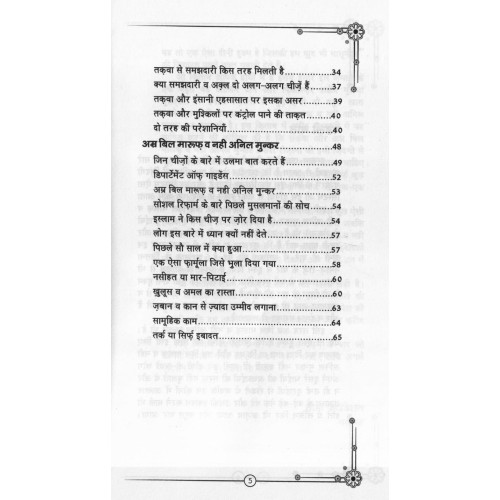 तक़वा से समझदारी किस तरह मिलती है....................34
क्या समझदारी व अक़्ल दो अलग-अलग चीज़ें हैं.........37
तक़वा और इंसानी एहसासात पर इसका असर...............39
तक़वा और मुश्किलों पर कंट्रोल पाने की ताक़त..........40
दो तरह की परेशानियाँ.............................................40
अम्र बिल मारूफ़ व नही अनिल मुन्कर...................48
जिन चीज़ों के बारे में उलमा बात करते हैं..................49
डिपार्टमेंट ऑफ़ गाइडेंस..........................................52
अम्र बिल मारूफ़ व नही अनिल मुन्कर.....................53
सोशल रिफ़ार्म के बारे में पिछले मुसलमानों की सोच....54
इस्लाम ने किस चीज़ पर ज़ोर दिया है.......................54
लोग इस बारे में ध्यान क्यों नहीं देते..........................57
पिछले सौ साल में क्या हुआ...................................57
एक ऐसा फ़ार्मूला जिसे भुला दिया गया...................58
नसीहत या मार-पिटाई...........................................60
ख़ुलूस व अमल का रास्ता......................................60
ज़बान व कान से ज़्यादा उम्मीद लगाना....................63
सामूहिक काम......................................................64
तर्क या सिर्फ़ इबादत.............................................65
5